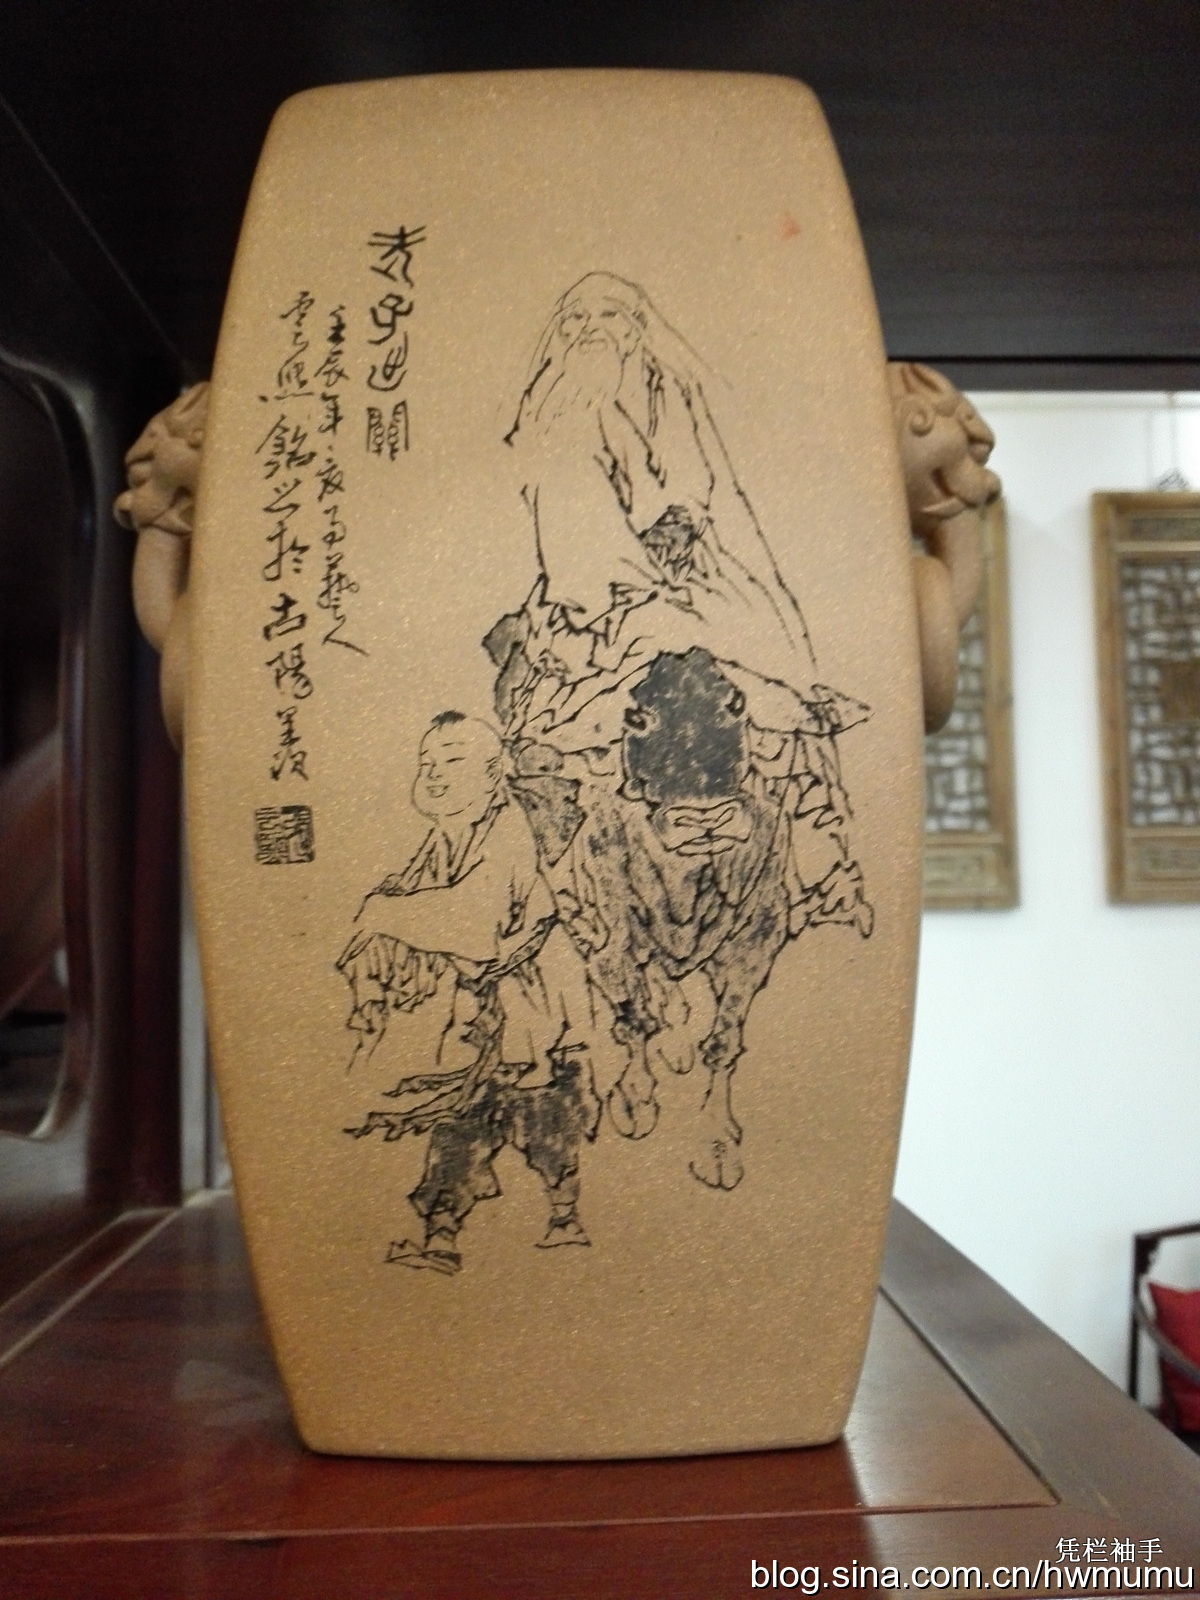 老子出關
壬辰年之夏月藝人
雲熙銘之於古陽羨
凭栏袖手
blog.sina.com.cn/hwmumu